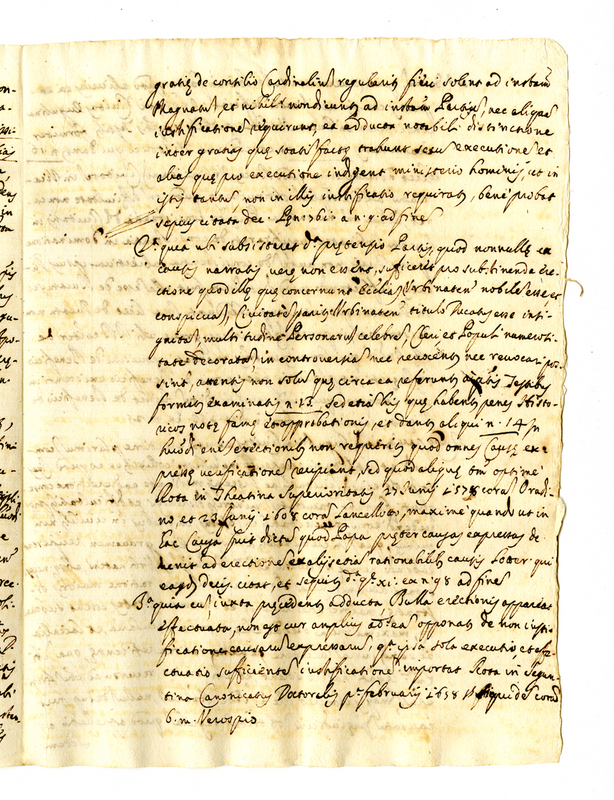 gratiæ de consilio Cardinalium regulariter fieri solent ad instam
Magnatum, et nihil nond. ad instam Partium, nec aliquam
iustificatione requirunt, ea adducta notabili distinctione
inter gratias quæ statim factæ trahunt secum executione et
alias quæ pro executione indigent ministerio hominis, et in
istis tantum non in illis iustificatio requiratur, bene probat
sæpius citata dec. 161 a n. 9 ad fines
2a quia ubi subsisteret da prætensio Partis, quod nonnullæ ex
causis narratis veræ non essent, sufficeret pro substinenda ere-
ctione quod illæ quæ concernunt Ecclesiam Urbinaten nobile esse et
conspicuam, Civitate pariter Urbinaten titulo Ducatus esse insi-
gnita, multitudine Personarum celebre, Cleri et Populi numerosi-
tate decorata, in controversia nec revocent nec revocari pos-
sint, attentis non solum quæ circa ea referunt Testibus
formiter examinatis n. 13 sed etiam his quæ habent penes Histo-
ricos notæ famæ et approbationis, et dant aliqui n. 14 In
huiusmodi enim erectionibus non requiritur quod omnes Causæ ex-
pressæ verificatione recipiant, sed quod aliqua optime
Rota in Theatina Superioritatis 27 Junij 1578 coram Oradi-
no, et 23 Junij 1608 coram Lancellotto, maxime quando ut in
hac Causa fuit dictum quod Papa præter causas expressas de-
venit ad erectiones ex alijs etiam rationabilibus causis Loter. qui
easdem decis. citat, et sequitur d. q. xi. ex n. 98 ad fines
3a quia cum iuxta præcedenter adducta Bulla erectionis appareat
effectuata, non est cur amplius ad ea opponatur de non iusti-
ficatione causarum expressarum, quia ipsa sola executio, et effe-
ctuatio sufficiente iustificatione importat Rota in Segun-
tina Canonicatus Doctoralis pa februarij 1638 coram
b. m. Verospio